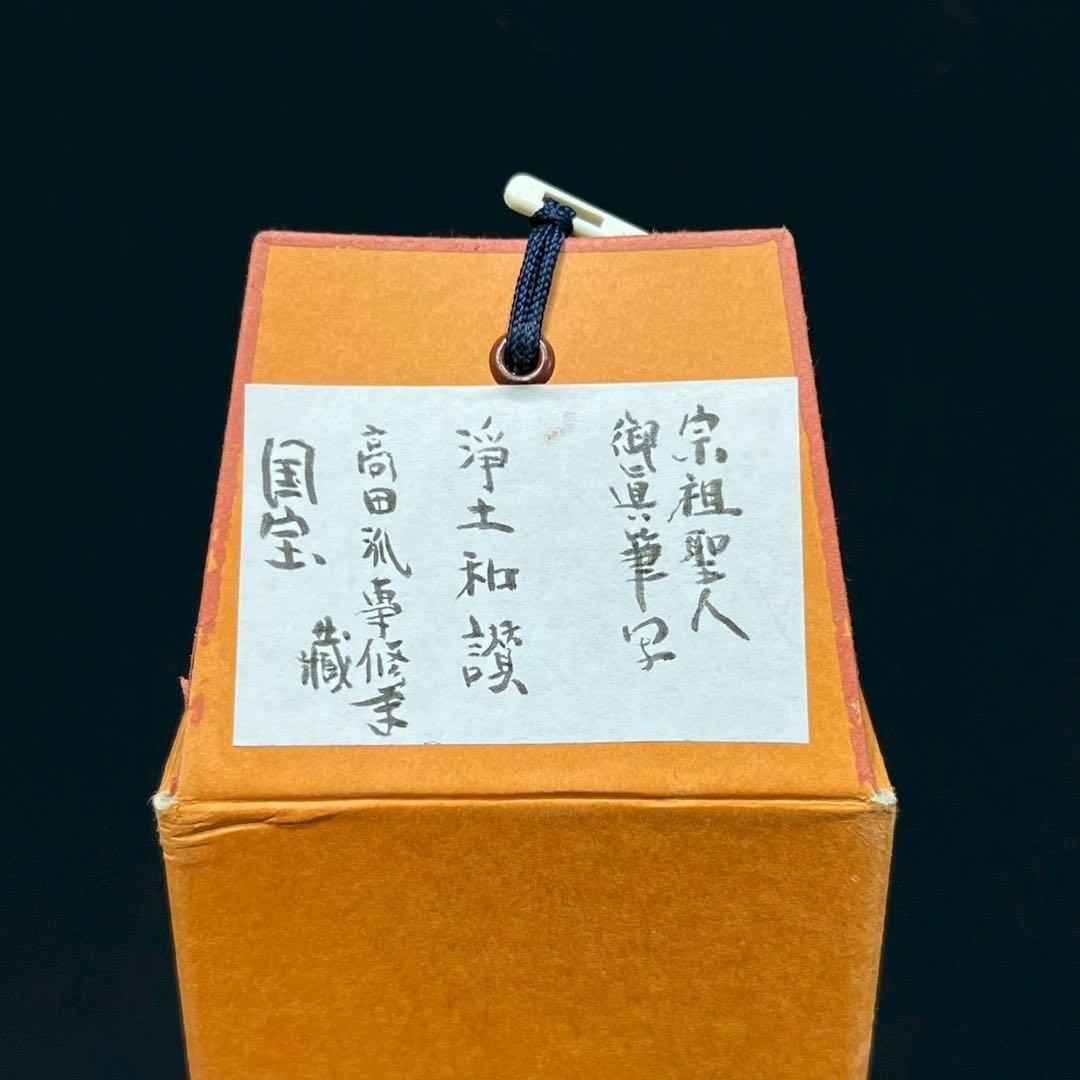 宗祖聖人
御眞筆写
淨土和讃
高田派專修寺
藏
国宝